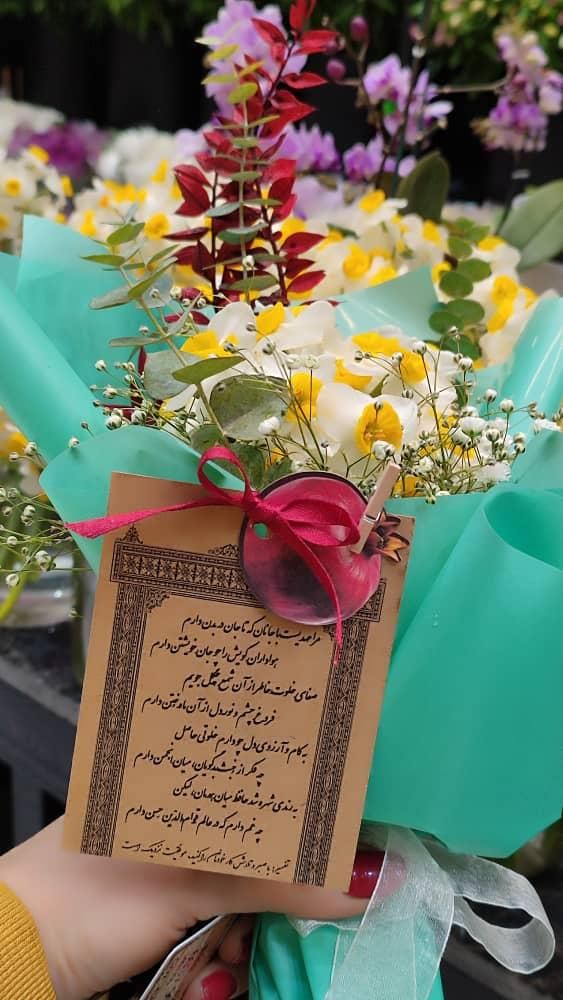 مرا عهدیست با جانان که تا جان در بدن دارم
هواداران کویش را چو جان خویشتن دارم
صفای خلوت خاطر از آن شمع چگل جویم
فروغ چشم و نور دل از آن ماه ختن دارم
به کام و آرزوی دل چو دارم خلوتی حاصل
چه فکر از خبث بدگویان، میان انجمن دارم
به رندی شهره شد حافظ میان همدمان، لیکن
چه غم دارم که در عالم قوام الدین حسن دارم
تفسیر: با صبر و تلاش کار خودتان را کنید، موفقیت نزدیک است